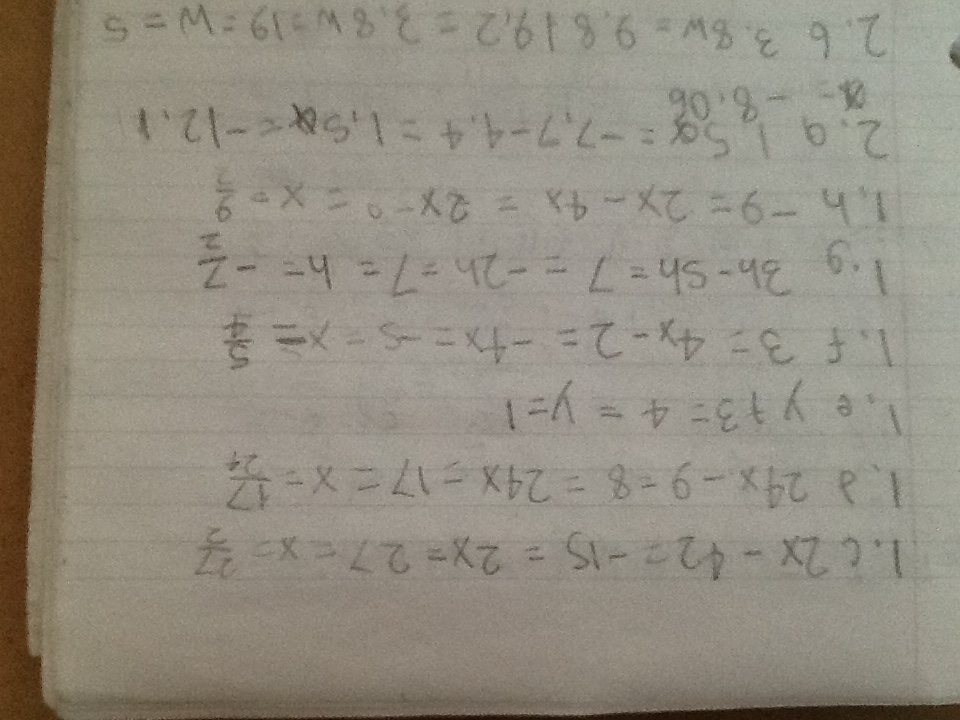 1.c 2x - 42 = -15 = 2x = 27 = x = 27/2
1.d 24x - 9 = 8 = 24x = 17 = x = 17/24
1.e y + 3 = 4 = y = 1
1.f 3 = 4x - 2 = -4x = -5 = x = 5/4
1.g 3h - 5h = 7 = -2h = 7 = h = -7/2
1.h -9 = 2x - 4x = 2x = 9 = x = 9/2
2.a 1.5x = -7.7 - 4.4 = 1.5x = -12.1
x = -8.06
2.b 3.8w = 9.8 + 9.2 = 3.8w = 19 = w = 5